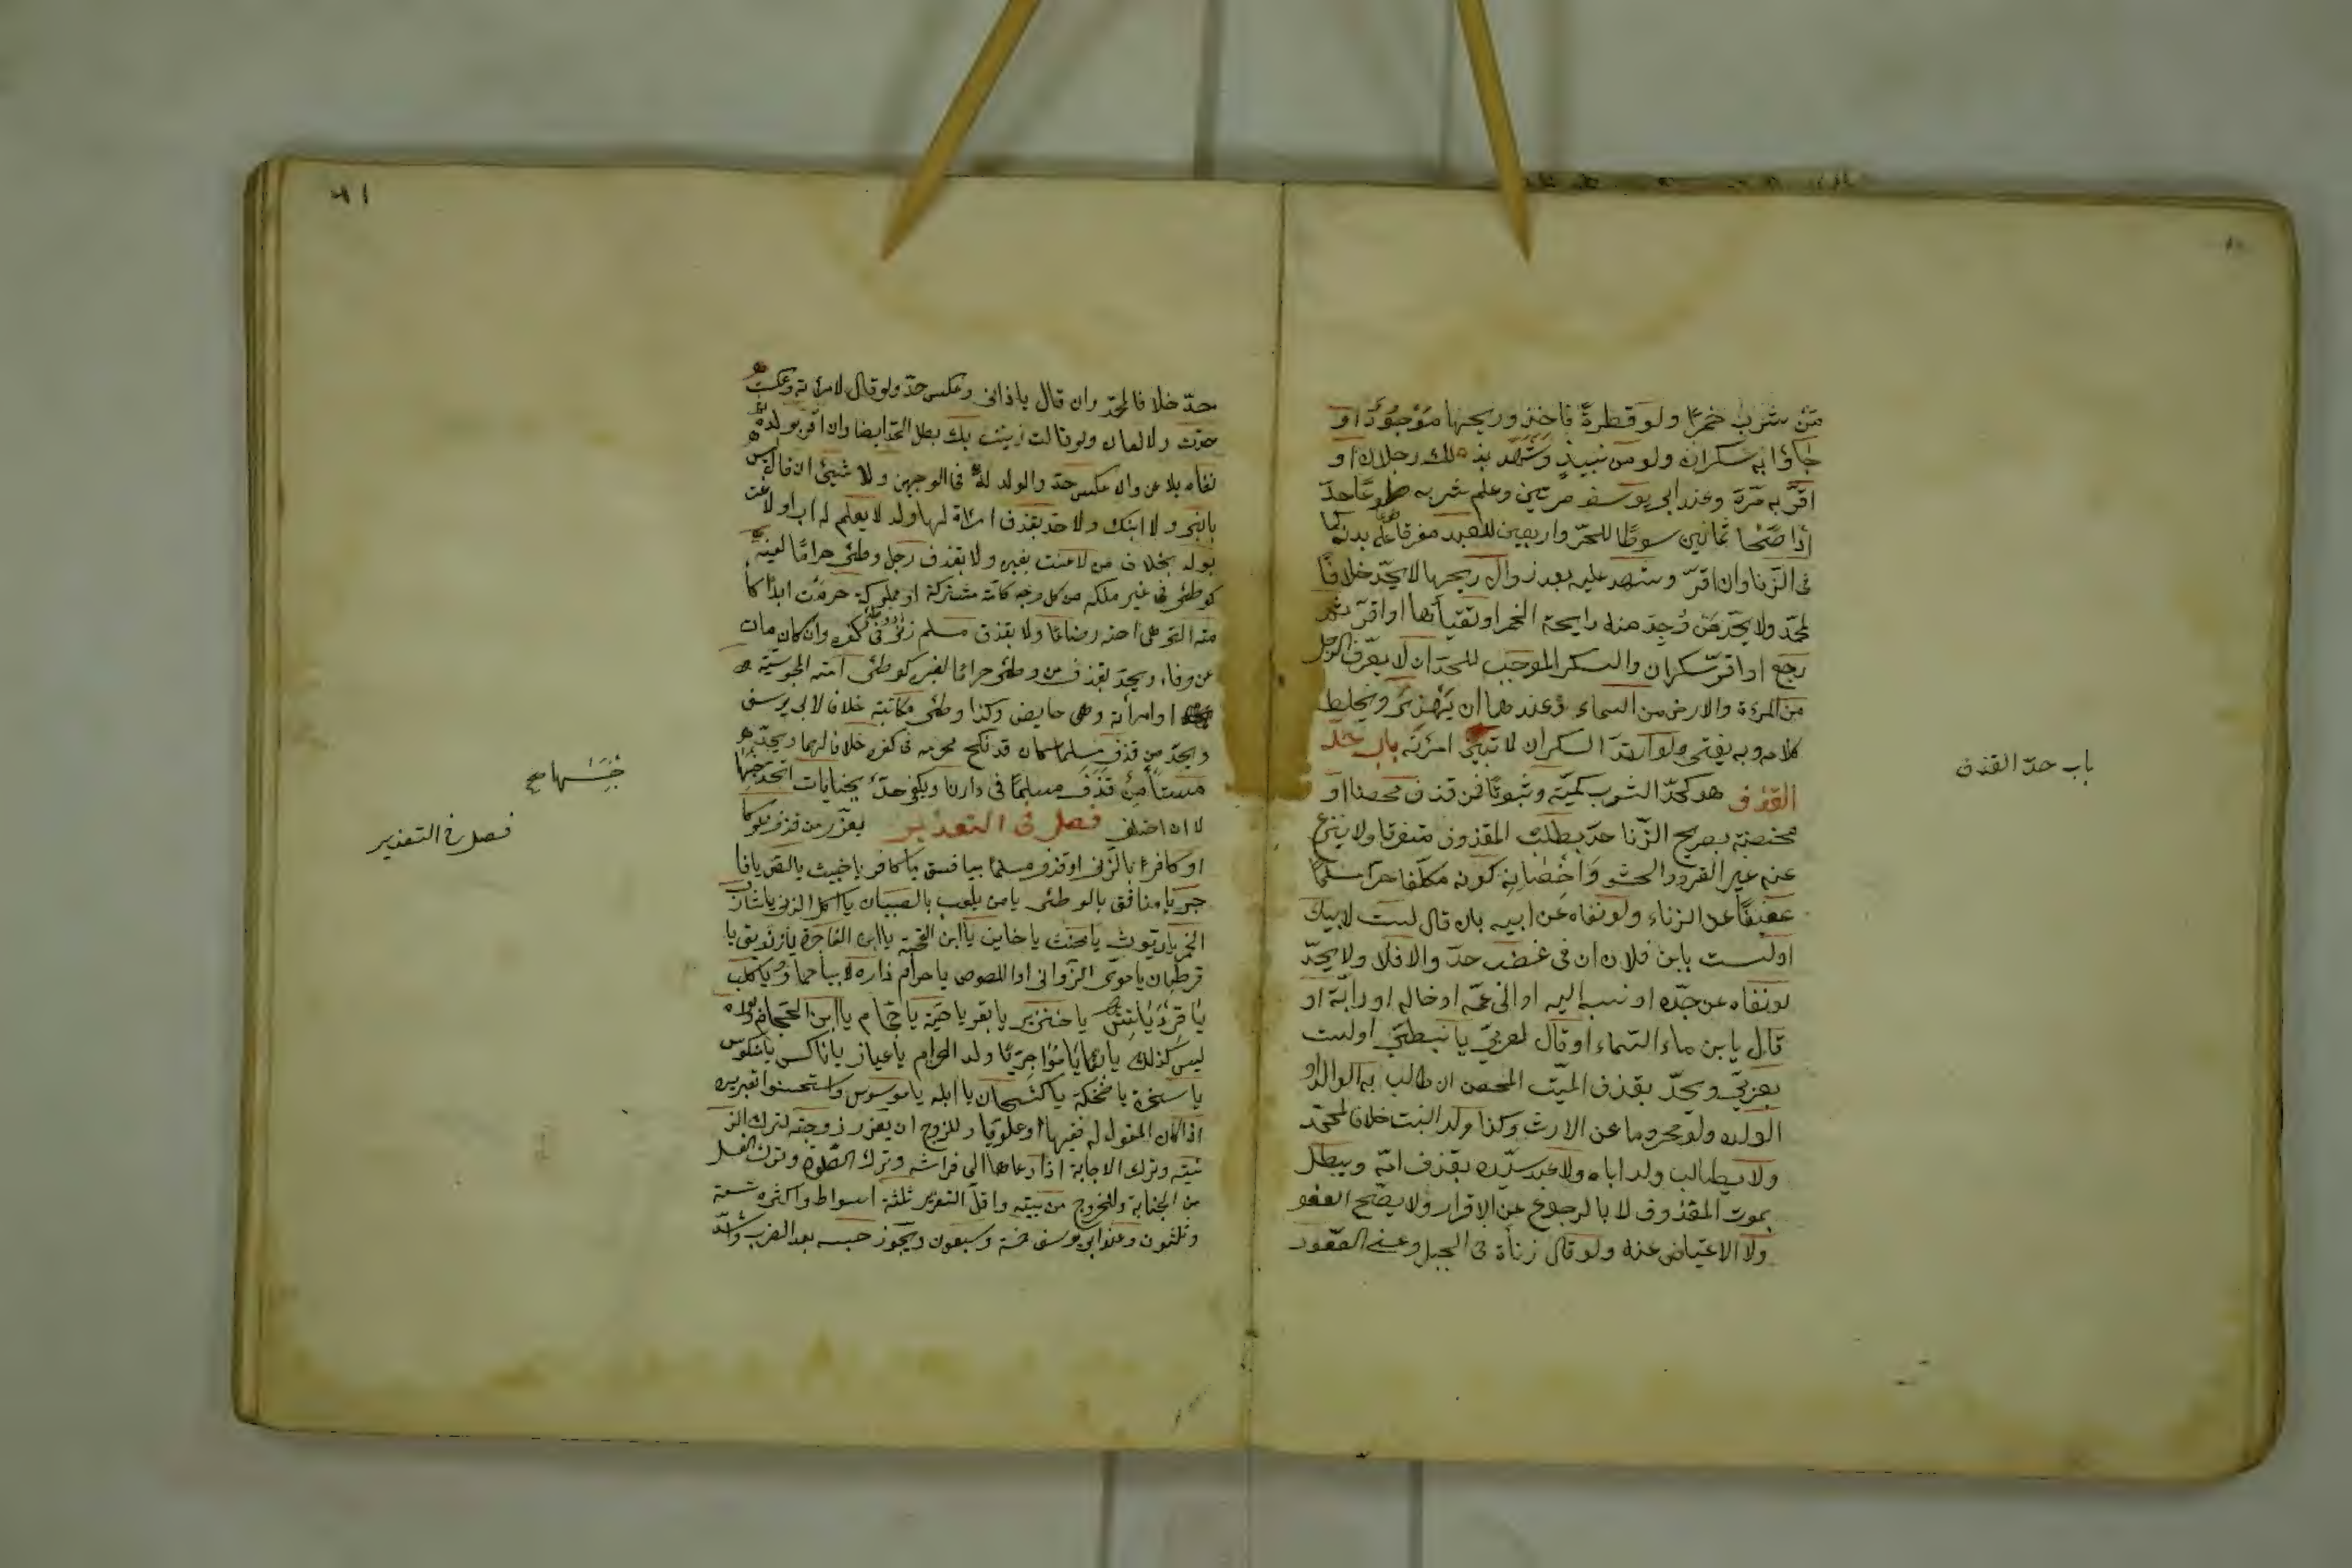 مَنْ شَرِبَ خمرًا ولو قطرةً فاخذ وريحها مَوْجُودٌ او
جاؤا به سكران ولو من نبيذٍ وشَهِدَ بذلك رجلان او
اقرّ به مرّة وعند ابي يوسف مرتين وعلم شربه طوعًا حدّ
اذا صَحَا ثمانين سوطًا للحرّ واربعين للعبد مفرقا على بدنه كما
فى الزنا وان اقرّ وشهد عليه بعد زوال ريحها لا يحدّ خلافًا
لمحمّد ولا يحدّ مَن وُجِدَ منه رايحة الخمر او تقيأها او اقرّ ثم
رجع او اقرّ سكران والسكر الموجب للحدّ ان لا يعرف الرجل
من المرءة والارض من السماء وعندهما ان يَهْذِىَ ويخلط
كلامه وبه يفتى ولو ارتدّ السكران لا تبين امرءته باب حدّ
القذف هو كحدّ الشرب كميّة وثبوتًا فمن قذف محصنا او
محصنة بصريح الزّنا حدّ بطلب المقذوف متفرقا ولا ينزع
عنه غير الفرو والحشو وَاحْصَانِه كونه مكلّفا حرّا مسلمًا
عفيفًا عن الزناء ولو نفاه عن ابيه بان قال لست لابيك
او لست بابن فلان ان فى غضب حدّ والا فلا ولا يحدّ
لو نفاه عن جدّه او نسبه اليه او الى عمّه او خاله او رابّه او
قال يا بن ماء السّماء او قال لعربىّ يا نبطىّ او لست
بعربىّ ويحدّ بقذف الميّت المحصن ان طالب به الوالد او
الولد ولو محروما عن الارث وكذا ولد البنت خلافا لمحمّد
ولا يطالب ولد اباه ولا عبد سيّده بقذف امّه ويبطل
بموت المقذوف لا بالرجوع عن الاقرار ولا يصحّ العفو
ولا الاعتياض عنه ولو قال زنأت فى الجبل وعنى الصّعود
باب حدّ القذف
٨١
حدّ خلافا لمحمّد وان قال يا زانى وعكس حدّا ولو قال لامرأته وعكست
حدّت ولا لعان ولو قالت زنيت بك بطل الحدّ ايضا وان اقرّ بولد ثم
نفاه يلاعن وان عكس حدّ والولد له فى الوجهين ولا شيئ ان قال ليس
بابنى ولا ابنك ولا حدّ بقذف امرأة لها ولد لا يعلم له اب او لاعنت
بولد بخلاف من لاعنت بغيره ولا بقذف رجل وطئ حراما لعينه
كوطئ فى غير ملكه من كل وجه كامة مشتركة او مملوكة حرمت ابدًا كا
مته التى هى اخته رضاعًا ولا بقذف مسلم زنى فى كفره وان كان مات
عن وفاء ويحدّ بقذف من وطئ حراما لغيره كوطئ امته المجوسيّة
او امرأته وهى حايض وكذا وطئ مكاتبته خلافا لابى يوسف
ويحدّ من قذف مسلما كان قد نكح محرمه فى كفره خلافا لهما ويحدّ
مستأمن قذف مسلمًا فى دارنا ويكفى حدّ بجنايات اتحد جنسها
لا ان اختلف فصل فى التعذير يعزّر من قذف مملوكا
او كافرا بالزنى او قذف مسلما بيا فسق يا كافر يا خبيث يا لص يا فا
جر يا منافق يا لوطئ يا من يلعب بالصبيان يا اكل الربى يا شارب
الخمر يا ديّوث يا مخنث يا خاين يا ابن القحبة يا ابن الفاجرة يا زنديق يا
قرطبان يا مؤى الزوانى او اللصوص يا حرام ذاده لا بيا حمار يا كلب
يا قرد يا تيس يا خنزير يا بقر يا حيّة يا حجّام يا ابن الحجام وابوه
ليس كذلك يا بغّا يا مؤاجر يا ولد الحرام يا عيار يا ناكس يا منكوس
يا سخرة يا ضحكة يا كشحان يا ابله يا موسوس واستحسنوا تعزيره
اذا كان المقول له فقيها او علويّا وللزوج ان يعزر زوجته لترك الز
ينته وترك الاجابة اذا دعاها الى فراشه وترك الصّلوة وترك الغسل
من الجنابة وللخروج من بيته واقلّ التعزير ثلثة اسواط واكثره تسعة
وثلثون وعند ابى يوسف خمسة وسبعون ويجوز حبسه بعد الضرب واشدّ
جِنسُها صح
فصل فى التعذير